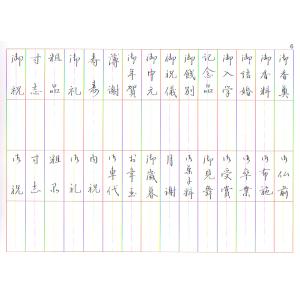 6
御香奠
御香料
御結婚
御入学
記念品
御餞別
御祝儀
御中元
御年賀
薄謝
寿
御礼
粗品
寸志
御祝
御仏前
御布施
御卒業
御受賞
御見舞
御菓子料
月謝
御歳暮
お年玉
御車代
内祝
御礼
粗品
寸志
御祝